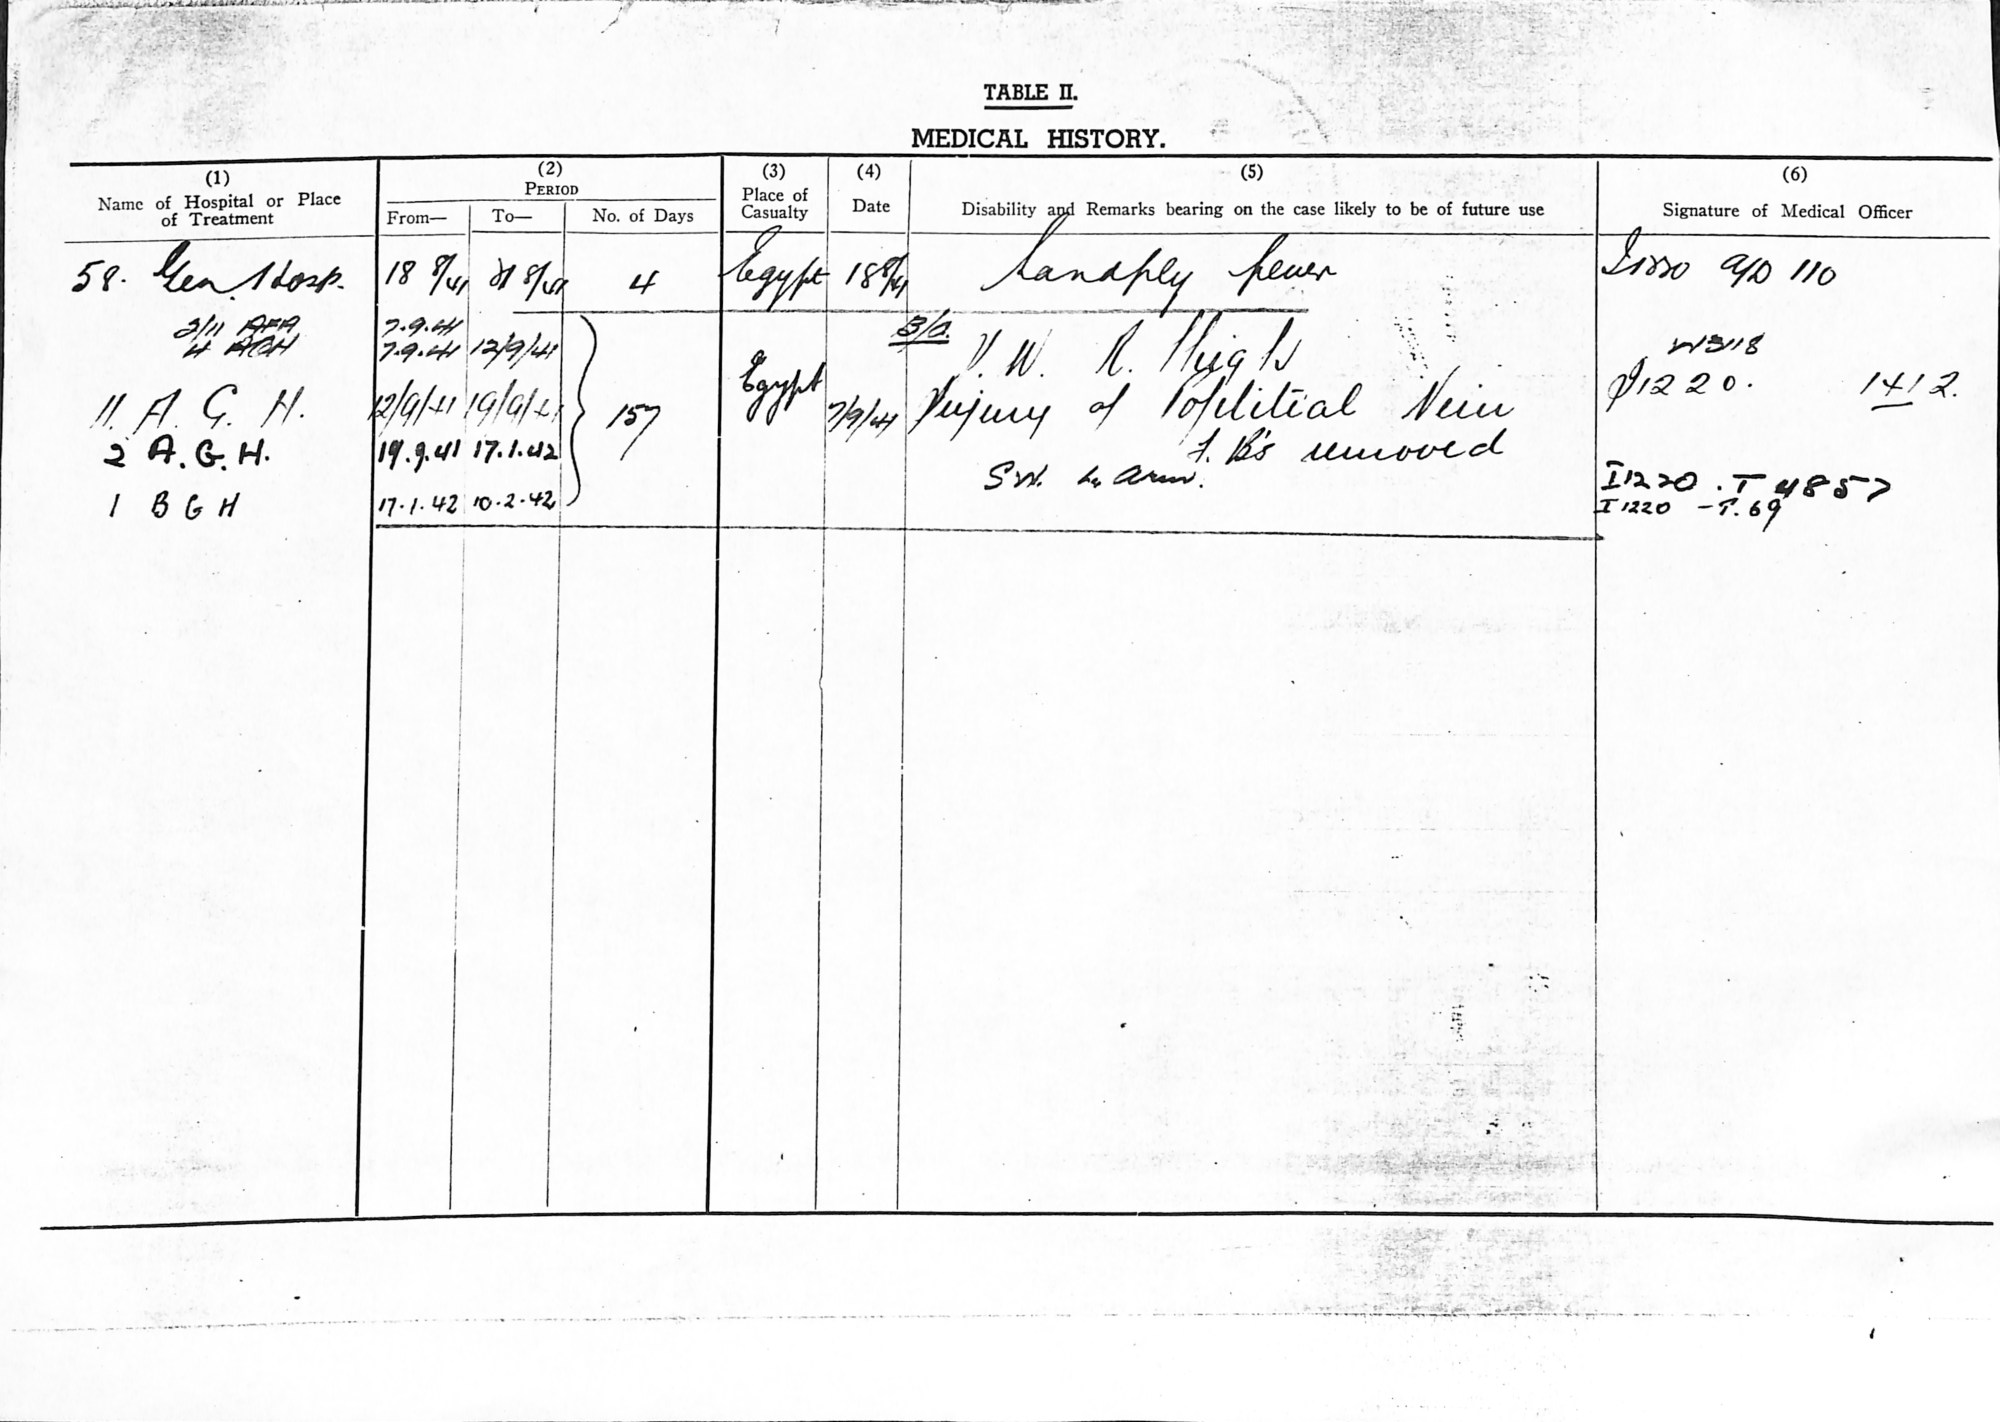 TABLE II.
MEDICAL HISTORY.
(1) (2) (3) (4) (5) (6)
Name of Hospital or Place of Treatment
PERIOD
From— To— No. of Days
Place of Casualty
Date
Disability and Remarks bearing on the case likely to be of future use
Signature of Medical Officer
58. Gen. Hosp. 18 8/41 21 8/41 4 Egypt 18 8/41 Sandfly fever I1220 A/D 110
2/11 AFA 7.9.41 B/C. V. W. R. Thigh W3118
4 AGH 7.9.41 12/9/41 Egypt I1220. 1412.
11. A. G. H. 12/9/41 19/9/41 157 7/9/41 Injury of Poplitial Vein
2 A.G.H. 19.9.41 17.1.42 F. B's removed
S.W. L. Arm. I1220 . T 4857
1 B G H 17.1.42 10.2.42 I1220 - T. 69